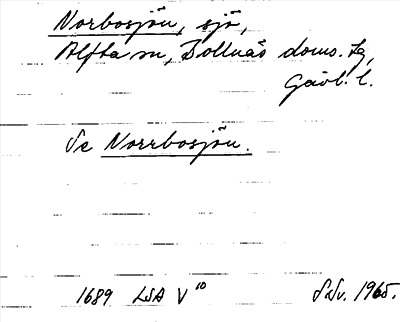 Norbosjön, sjö,
Alfta sn, Bollnäs doms. tg,
Gävl. l.
Se Norrbosjön.
1689 LSA V¹⁰ 1965.